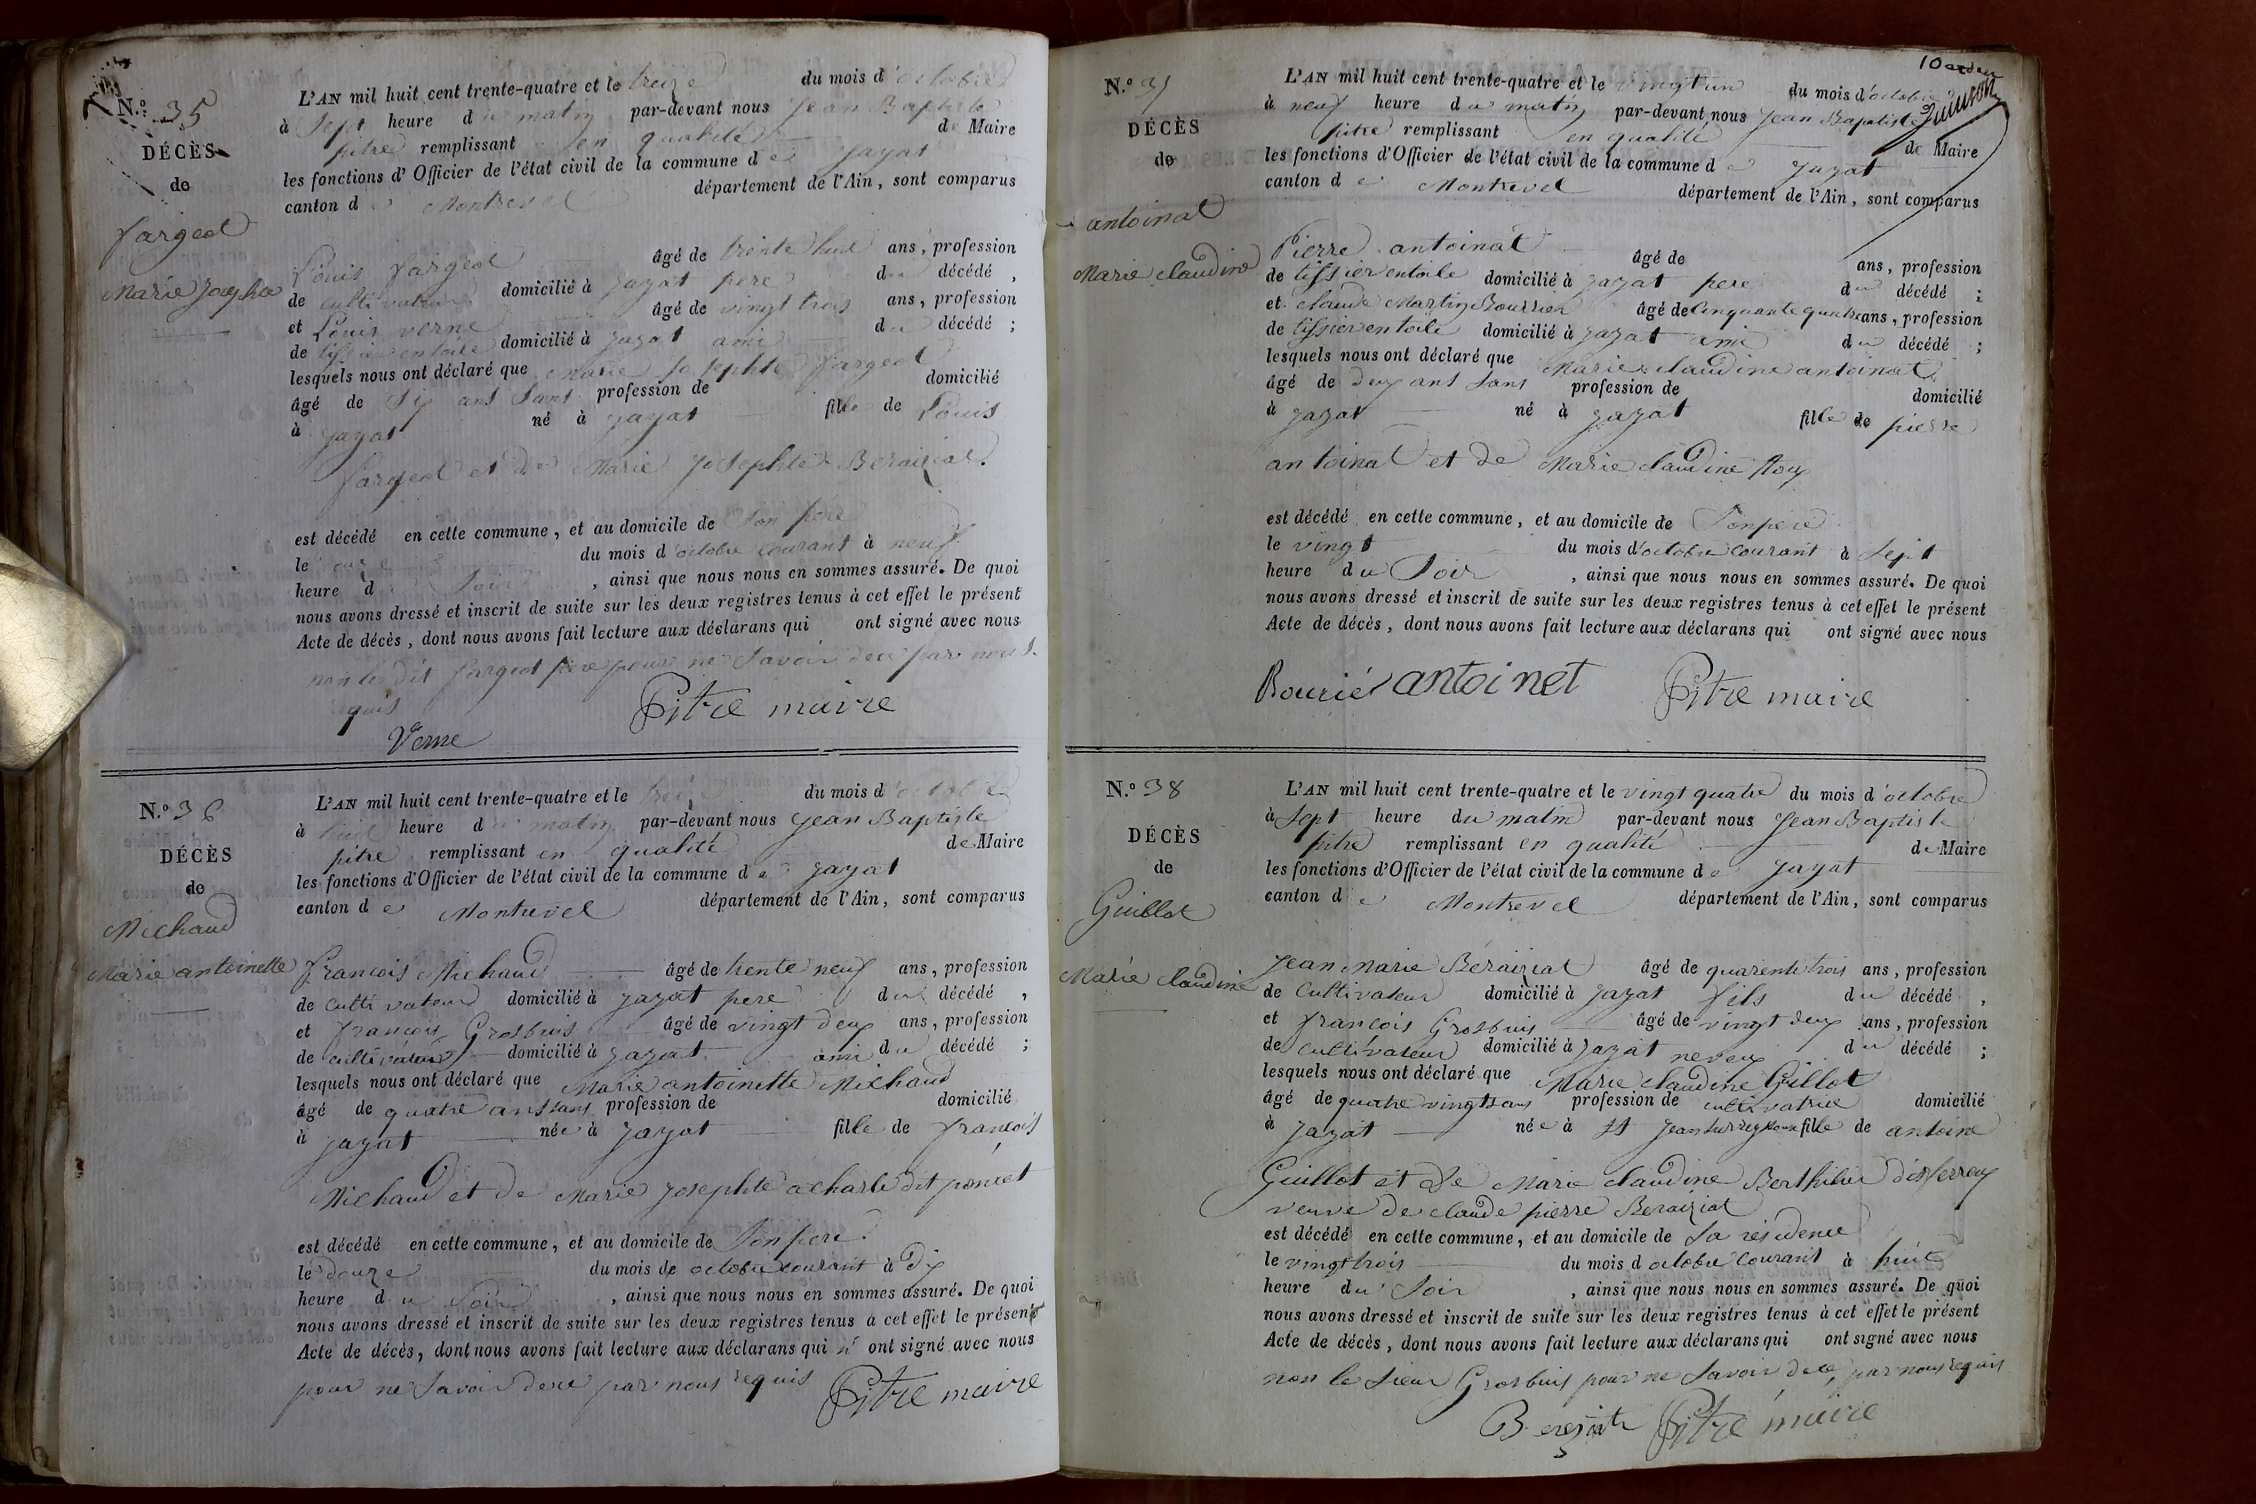 N.o 35
DÉCÈS
de
fargeot
Marie Josephte
L'AN mil huit cent trente-quatre et le treize du mois d'octobre
à Sept heure du matin par-devant nous Jean Baptiste
pitre remplissant en qualité de Maire
les fonctions d'Officier de l'état civil de la commune de Jayat
canton de Montrevel département de l'Ain, sont comparus
Louis fargeot âgé de trente huit ans, profession
de cultivateur domicilié à Jayat pere du décédé,
et Louis verne âgé de vingt trois ans, profession
de tissier en toile domicilié à Jayat ami du décédé;
lesquels nous ont déclaré que Marie Josephte fargeot
âgé de Six ans Sans profession de domicilié
à Jayat né à Jayat fille de Louis
fargeot et de Marie Josephte Beraiziat
est décédé en cette commune, et au domicile de Son pere
le onze du mois d'octobre courant à neuf
heure du Soir, ainsi que nous nous en sommes assuré. De quoi
nous avons dressé et inscrit de suite sur les deux registres tenus à cet effet le présent
Acte de décès, dont nous avons fait lecture aux déclarans qui ont signé avec nous
non le dit fargeot pere pour ne Savoir de ce par nous
requis
Verne Pitre maire
N.o 36
DÉCÈS
de
Michaud
Marie antoinette
L'AN mil huit cent trente-quatre et le treize du mois d'octobre
à huit heure du matin par-devant nous Jean Baptiste
pitre remplissant en qualité de Maire
les fonctions d'Officier de l'état civil de la commune de Jayat
canton de Montrevel département de l'Ain, sont comparus
francois Michaud âgé de trente neuf ans, profession
de cultivateur domicilié à Jayat pere du décédé,
et francois Grosbuis âgé de vingt deux ans, profession
de cultivateur domicilié à Jayat ami du décédé;
lesquels nous ont déclaré que Marie antoinette Michaud
âgé de quatre ans sans profession de domicilié
à Jayat née à Jayat fille de francois
Michaud et de Marie Josephte acharle dit poncet
est décédé en cette commune, et au domicile de Son pere
le douze du mois de octobre courant à dix
heure du Soir, ainsi que nous nous en sommes assuré. De quoi
nous avons dressé et inscrit de suite sur les deux registres tenus à cet effet le présent
Acte de décès, dont nous avons fait lecture aux déclarans qui n' ont signé avec nous
pour ne Savoir de ce par nous requis Pitre maire
N.o 37
DÉCÈS
de
antoinat
Marie claudine
L'AN mil huit cent trente-quatre et le vingt un du mois d'octobre
à neuf heure du matin par-devant nous Jean Baptiste
pitre remplissant en qualité de Maire
les fonctions d'Officier de l'état civil de la commune de Jayat
canton de Montrevel département de l'Ain, sont comparus
Pierre antoinat âgé de ans, profession
de tissier en toile domicilié à Jayat pere du décédé;
et claude Martin Bourrier âgé de Cinquante quatre ans, profession
de tissier en toile domicilié à Jayat ami du décédé;
lesquels nous ont déclaré que Marie claudine antoinat
âgé de deux ans Sans profession de domicilié
à Jayat né à Jayat fille de pierre
antoinat et de Marie claudine Roux
est décédé en cette commune, et au domicile de Son pere
le vingt du mois d'octobre courant à Sept
heure du Soir, ainsi que nous nous en sommes assuré. De quoi
nous avons dressé et inscrit de suite sur les deux registres tenus à cet effet le présent
Acte de décès, dont nous avons fait lecture aux déclarans qui ont signé avec nous
Bourié antoinet Pitre maire
N.o 38
DÉCÈS
de
Guillot
Marie claudine
L'AN mil huit cent trente-quatre et le vingt quatre du mois d'octobre
à Sept heure du matin par-devant nous Jean Baptiste
pitre remplissant en qualité de Maire
les fonctions d'Officier de l'état civil de la commune de Jayat
canton de Montrevel département de l'Ain, sont comparus
Jean Marie Beraiziat âgé de quarente trois ans, profession
de Cultivateur domicilié à Jayat fils du décédé,
et francois Grosbuis âgé de vingt deux ans, profession
de cultivateur domicilié à Jayat neveu du décédé;
lesquels nous ont déclaré que Marie claudine Guillot
âgé de quatre vingts ans profession de cultivatrice domicilié
à Jayat née à St Jean sur reyssouze fille de antoine
Guillot et de Marie claudine Berthilier
veuve de claude pierre Beraiziat
est décédé en cette commune, et au domicile de Sa résidence
le vingt trois du mois d octobre courant à huit
heure du Soir, ainsi que nous nous en sommes assuré. De quoi
nous avons dressé et inscrit de suite sur les deux registres tenus à cet effet le présent
Acte de décès, dont nous avons fait lecture aux déclarans qui ont signé avec nous
non le Sieur Grosbuis pour ne Savoir de ce par nous requis
Pitre maire